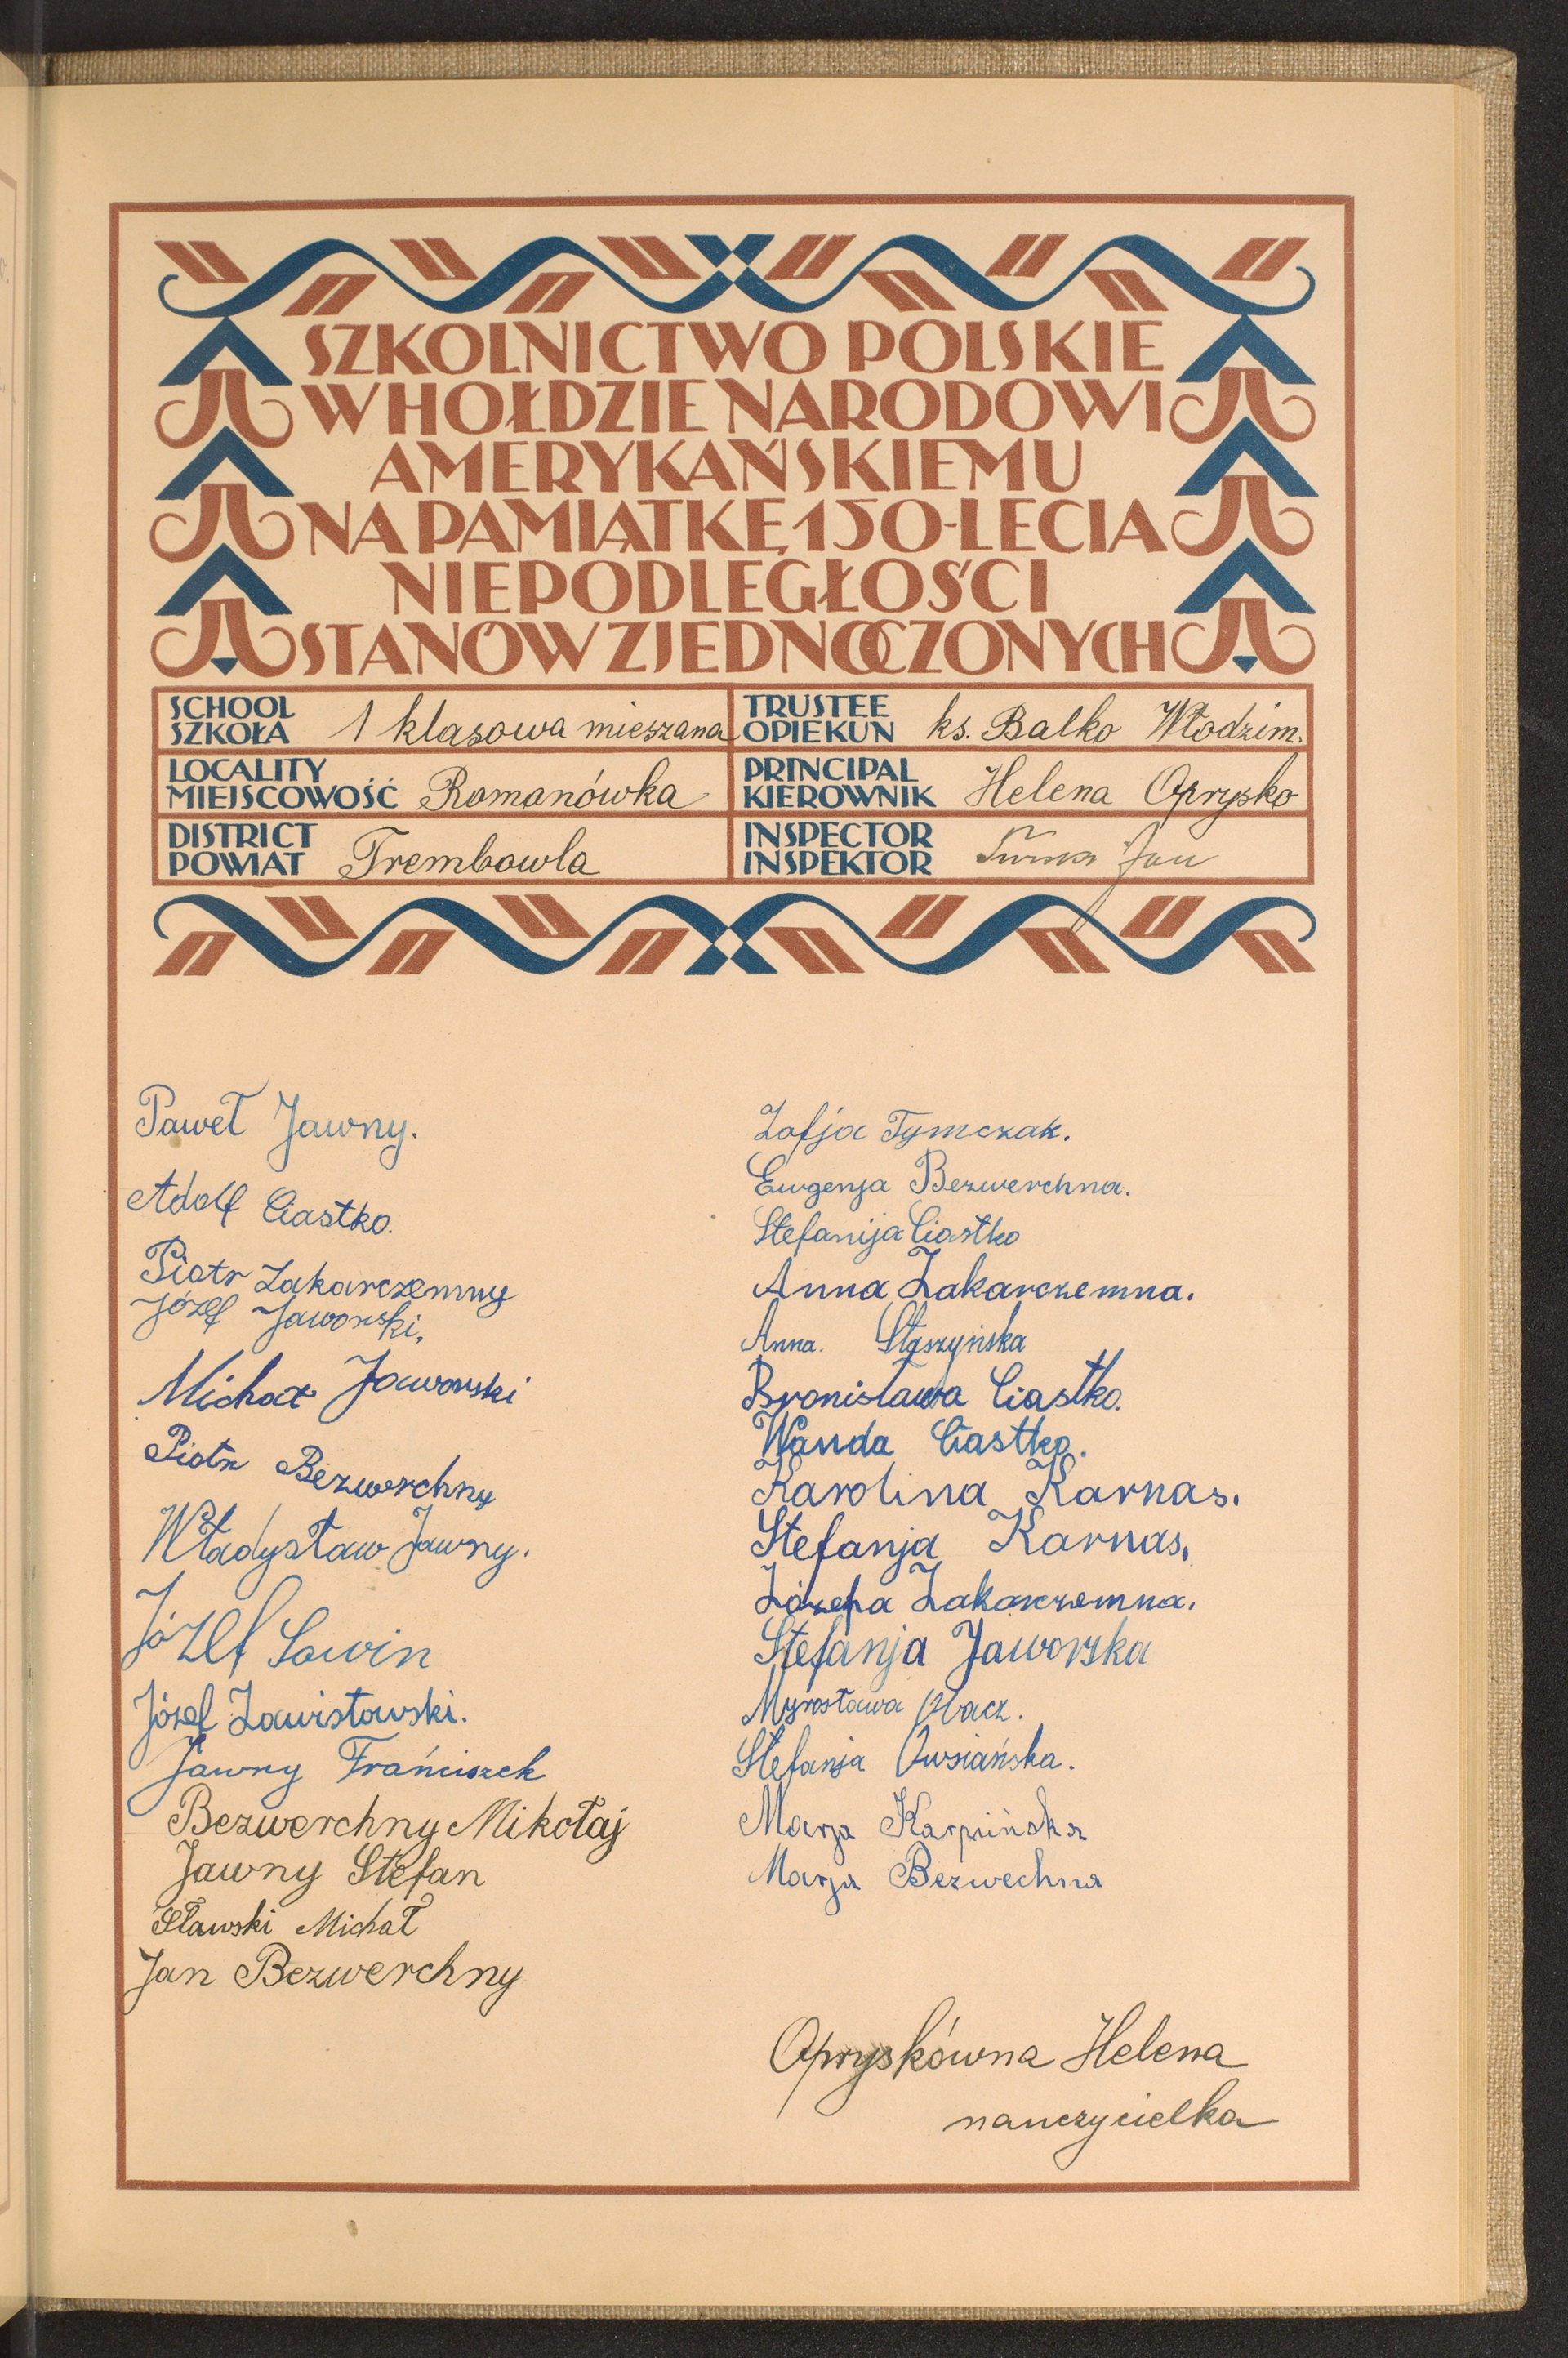 SZKOLNICTWO POLSKIE
W HOŁDZIE NARODOWI
AMERYKAŃSKIEMU
NA PAMIĄTKĘ 150-LECIA
NIEPODLEGŁOŚCI
STANÓW ZJEDNOCZONYCH
SCHOOL
SZKOŁA 1 klasowa mieszana
TRUSTEE
OPIEKUN ks. Balko Włodzim.
LOCALITY
MIEJSCOWOŚĆ Romanówka
PRINCIPAL
KIEROWNIK Helena Oprysko
DISTRICT
POWIAT Trembowla
INSPECTOR
INSPEKTOR Jan
Paweł Jawny.
Adolf Ciastko.
Piotr Zakarczemny
Józef Jaworski.
Michał Jaworski
Piotr Bezwerchny
Władysław Jawny.
Józef Sawin
Józef Zawistowski.
Jawny Frańciszek
Bezwerchny Mikołaj
Jawny Stefan
Sławski Michał
Jan Bezwerchny
Zofja Tymczak.
Eugenja Bezwerchna.
Stefanija Ciastko
Anna Zakarczemna.
Anna. Staszyńska
Bronisława Ciastko.
Wanda Ciastko.
Karolina Karnas.
Stefanja Karnas.
Józefa Zakarczemna.
Stefanja Jaworska
Myrosława
Stefanja Owsiańska.
Marja Karpińska
Marja Bezwechna
Opryskówna Helena
nauczycielka